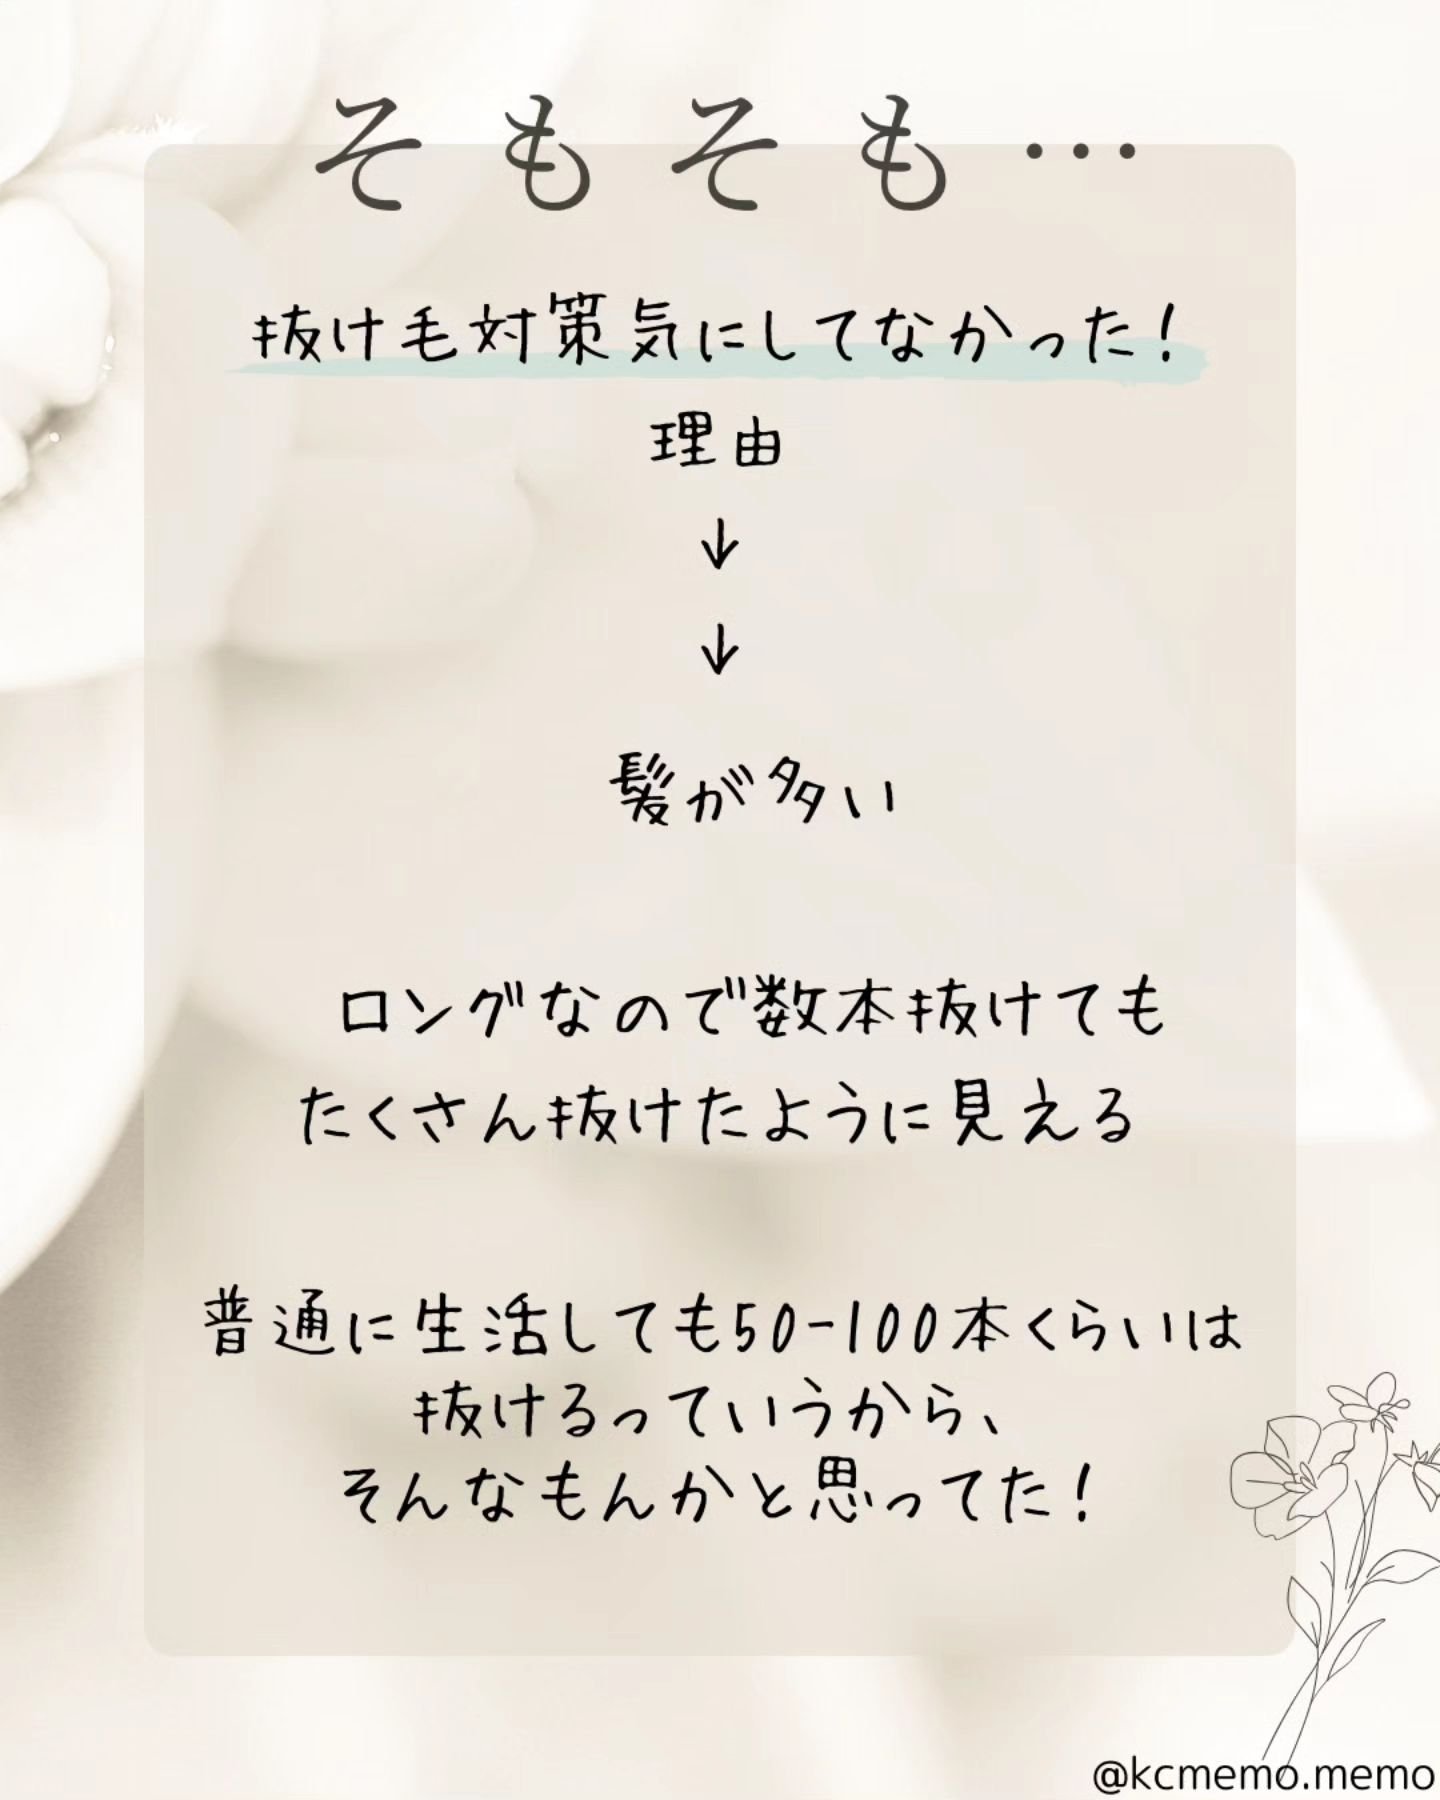 そもそも…
抜け毛対策気にしてなかった！
理由
↓
↓
髪が多い
ロングなので数本抜けても
たくさん抜けたように見える
普通に生活しても50-100本くらいは
抜けるっていうから、
そんなもんかと思ってた！
@kcmemo.memo